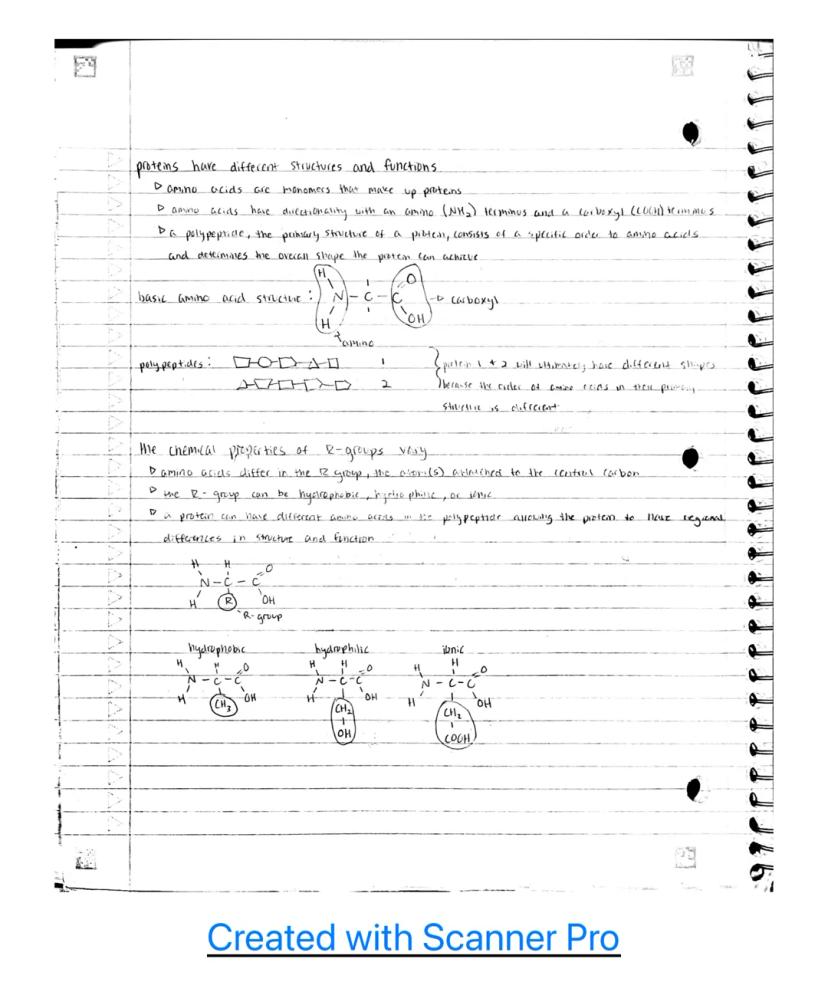 proteins have different structures and functions
▷ amino acids are monomers that make up proteins
▷ amino acids have directionality with an amino (NH₂) terminus and a carboxyl (COOH) terminus
▷ a polypeptide, the primary structure of a protein, consists of a specific order to amino acids
and determines the overall shape the protein can achieve
basic amino acid structure : H H N - C - C O OH → carboxyl
amino
polypeptides : 1 protein 1 + 2 will ultimately have different shapes
2 because the order of amino acids in their primary
structure is different
the chemical properties of R-groups vary
▷ amino acids differ in the R group, the atom(s) attached to the central carbon
▷ the R-group can be hydrophobic, hydrophilic, or ionic
▷ a protein can have different amino acids in the polypeptide allowing the protein to have regional
differences in structure and function
H H O
N - C - C
H R OH
R-group
hydrophobic hydrophilic ionic
H H O H H O H H O
N - C - C N - C - C N - C - C
H CH₃ OH H CH₂ OH H CH₂ OH
OH COOH
Created with Scanner Pro